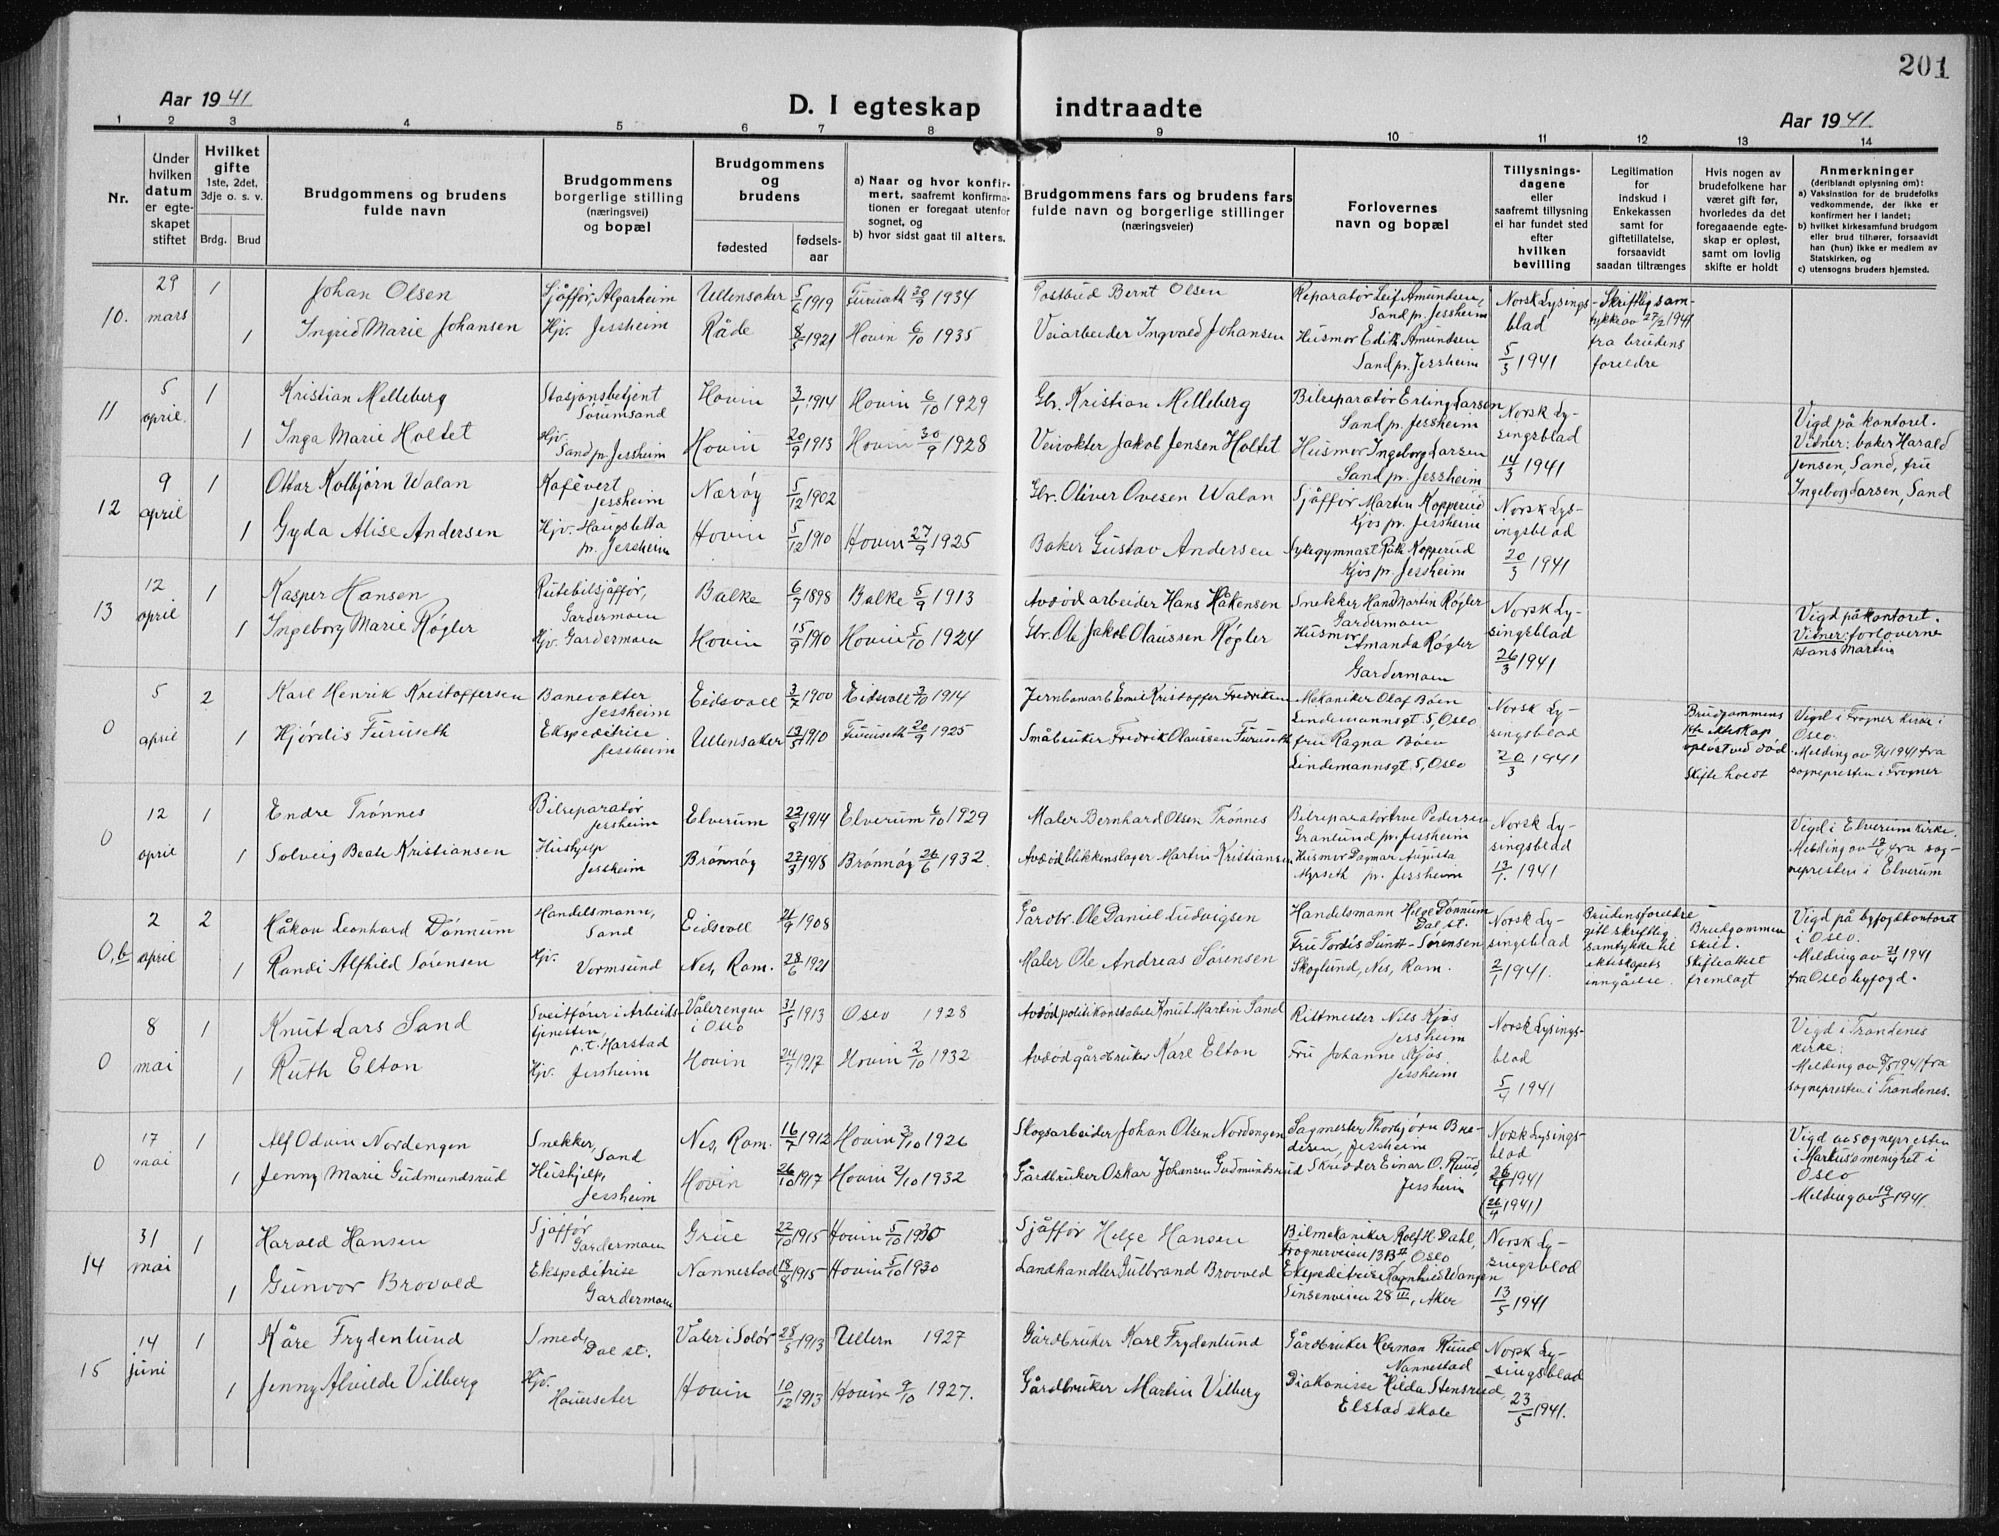 201
Aar 1941
D. I egteskap indtraadte
Aar 1941
1 2 3 4 5 6 7 8 9 10 11 12 13 14
Nr.
Under
hvilken
datum
er egte-
skapet
stiftet
Hvilket
gifte
1ste, 2det,
3dje o. s. v.
Brdg. Brud
Brudgommens og brudens
fulde navn
Brudgommens
borgerlige stilling
(næringsvei)
og bopæl
Brudgommens
og
brudens
fødested
fødsels-
aar
a) Naar og hvor konfir-
mert, saafremt konfirma-
tionen er foregaat utenfor
sognet, og
b) hvor sidst gaat til alters.
Brudgommens fars og brudens fars
fulde navn og borgerlige stillinger
(næringsveier)
Forlovernes
navn og bopæl
Tillysnings-
dagene
eller
saafremt tillysning
ei har fundet sted
efter
hvilken
bevilling
Legitimation
for
indskud i
Enkekassen
samt for
giftetillatelse,
forsaavidt
saadan tiltrænges
Hvis nogen av
brudefolkene har
været gift før,
hvorledes da det
foregaaende egte-
skap er opløst,
samt om lovlig
skifte er holdt
Anmerkninger
(deriblandt oplysning om):
a) Vaksination for de brudefolks
vedkommende, der ikke er
konfirmert her i landet;
b) hvilket kirkesamfund brudgom
eller brud tilhører, forsaavidt
han (hun) ikke er medlem av
Statskirken, og
c) utensogns bruders hjemsted.
10. 29 mars 1 Johan Olsen Sjåffør, Algarheim Ullensaker 5/6 1919 Furuseth 30/9 1934 Postbud Bernt Olsen Reparatør Leif Amundsen, Sand pr. Jessheim Norsk Lysingsblad 5/3 1941 Skriftlig samtykke av 27/2 1941 fra brudens foreldre
1 Ingrid Marie Johansen Hjv. Jessheim Råde 8/5 1921 Hovin 6/10 1935 Veiarbeider Ingvald Johansen Husmor Edith Amundsen Sand pr. Jessheim
11 5 april 1 Kristian Melleberg Stasjonsbetjent Sørumsand Hovin 3/1 1914 Hovin 6/10 1929 Gbr. Kristian Melleberg Bilreparatør Erling Larsen Sand pr. Jessheim Norsk Lysingsblad 14/3 1941 Vigd på kontoret. Vidner: baker Harald Jensen, Sand, fru Ingeborg Larsen, Sand
1 Inga Marie Holtet Hjv. Sand pr. Jessheim Hovin 20/9 1913 Hovin 30/9 1928 Veivokter Jakob Jensen Holtet Husmor Ingeborg Larsen Sand pr. Jessheim
12 9 april 1 Ottar Kolbjørn Walan Kafévert Jessheim Nærøy 5/12 1902 Gbr. Oliver Ovesen Walan Sjåffør Martin Kopperud Kjos pr. Jessheim Norsk Lysingsblad 20/3 1941
1 Gyda Alise Andersen Hjv. Haugsletta pr. Jessheim Hovin 5/12 1910 Hovin 27/9 1925 Baker Gustav Andersen Sykegymnast Ruth Kopperud Kjos pr. Jessheim
13 12 april 1 Kasper Hansen Rutebilsjåffør, Gardermoen Balke 6/7 1898 Balke 5/9 1913 Avdød arbeider Hans Håkensen Snekker Hans Martin Røgler Gardermoen Norsk Lysingsblad 26/3 1941 Vigd på kontoret. Vidner: forloverne Hans Martin
1 Ingeborg Marie Røgler Hjv. Gardermoen Hovin 15/9 1910 Hovin 5/10 1924 Gbr. Ole Jakob Olaussen Røgler Husmor Amanda Røgler Gardermoen
0 5 april 2 Karl Henrik Kristoffersen Banevokter Jessheim Eidsvoll 3/7 1900 Eidsvoll 3/10 1914 Jernbanearb. Emil Kristoffer Fredriksen Mekaniker Olaf Bøen Lindemannsgt 5, Oslo Norsk Lysingsblad 20/3 1941 Brudgommens 1ste ekteskap opløst ved død. Skifte holdt Vigd i Frogner kirke i Oslo. Melding av 9/4 1941 fra sognepresten i Frogner
1 Hjørdis Furuseth Ekspeditrise Jessheim Ullensaker 13/5 1910 Furuseth 20/9 1925 Småbruker Fredrik Olaussen Furuseth fru Ragna Bøen Lindemannsgt 5, Oslo
0 12 april 1 Endre Trønnes Bilreparatør Jessheim Elverum 22/8 1914 Elverum 6/10 1929 Maler Bernhard Olsen Trønnes Bilreparatør Arve Pedersen Granlund pr. Jessheim Norsk Lysingsblad 13/1 1941 Vigd i Elverum kirke. Melding av 12/4 fra sognepresten i Elverum
1 Solveig Beate Kristiansen Hushjelp Jessheim Brønnøy 22/3 1918 Brønnøy 26/6 1932. Avdød blikkenslager Martin Kristiansen Husmor Dagmar Augusta Myrseth pr. Jessheim
0,b 2 april 2 Håkon Leonhard Dønnum Handelsmann, Sand Eidsvoll 21/9 1908 Gårdbr. Ole Daniel Ludvigsen Handelsmann Helge Dønnum Dal st. Norsk Lysingsblad 2/1 1941. Brudens foreldre gitt skriftlig samtykke til ekteskapets inngåelse. Brudgommen skilt. Skifteattest fremlagt Vigd på byfogdkontoret i Oslo. Melding av 21/4 1941 fra Oslo byfogd.
1 Randi Alfhild Sørensen Hjv. Vormsund Nes, Rom. 28/6 1921 Maler Ole Andreas Sørensen Fru Tordis Sundt-Sørensen Skoglund, Nes, Rom.
0 8 mai 1 Knut Lars Sand Sveitfører i Arbeidstjenesten, p.t. Harstad Vålerengen i Oslo 31/5 1913 Oslo 1928 Avdød politikonstabel Knut Martin Sand Rittmester Nils Kjos Jessheim Norsk Lysingsblad 5/4 1941 Vigd i Trondenes kirke. Melding av 8/5 1941 fra sognepresten i Trondenes.
1 Ruth Elton Hjv. Jessheim Hovin 24/7 1917 Hovin 2/10 1932 Avdød gårdbruker Karl Elton Fru Johanne Kjos Jessheim
0 17 mai 1 Alf Odvin Nordengen Snekker, Sand Nes, Rom. 16/7 1912 Hovin 3/10 1926 Skogsarbeider Johan Olsen Nordengen Sagmester Thorbjørn Bredesen, Jessheim Norsk Lysingsblad 26/4 1941 (26/4 1941) Vigd av sognepresten i Markus menighet i Oslo Melding av 19/5 1941.
1 Jenny Marie Gudmundsrud Hushjelp, Jessheim Hovin 26/10 1917 Hovin 2/10 1932 Gårdbruker Oskar Johansen Gudmundsrud Skredder Einar O. Ruud, Jessheim
14 31 mai 1 Harald Hansen Sjåffør Gardermoen Grue 22/10 1915 Hovin 5/10 1930 Sjåffør Helge Hansen Bilmekaniker Rolf H. Dahl, Frognerveien 13 B II Oslo Norsk Lysingsblad 13/5 1941
1 Gunvor Brovold Ekspeditrise Gardermoen Nannestad 18/8 1915 Hovin 5/10 1930 Landhandler Gulbrand Brovold Ekspeditrise Ragnhild Wangen Sinsenveien 28 III, Aker
15 14 juni 1 Kåre Frydenlund Smed, Dal st. Våler i Solør 28/5 1913 Ullern 1927 Gårdbruker Karl Frydenlund Gårdbruker Herman Ruud Nannestad Norsk Lysingsblad 23/5 1941.
1 Jenny Alvilde Vilberg Hjv. Hauerseter Hovin 10/12 1913 Hovin 9/10 1927. Gårdbruker Martin Vilberg Diakonisse Hilda Stensrud, Elstad skole